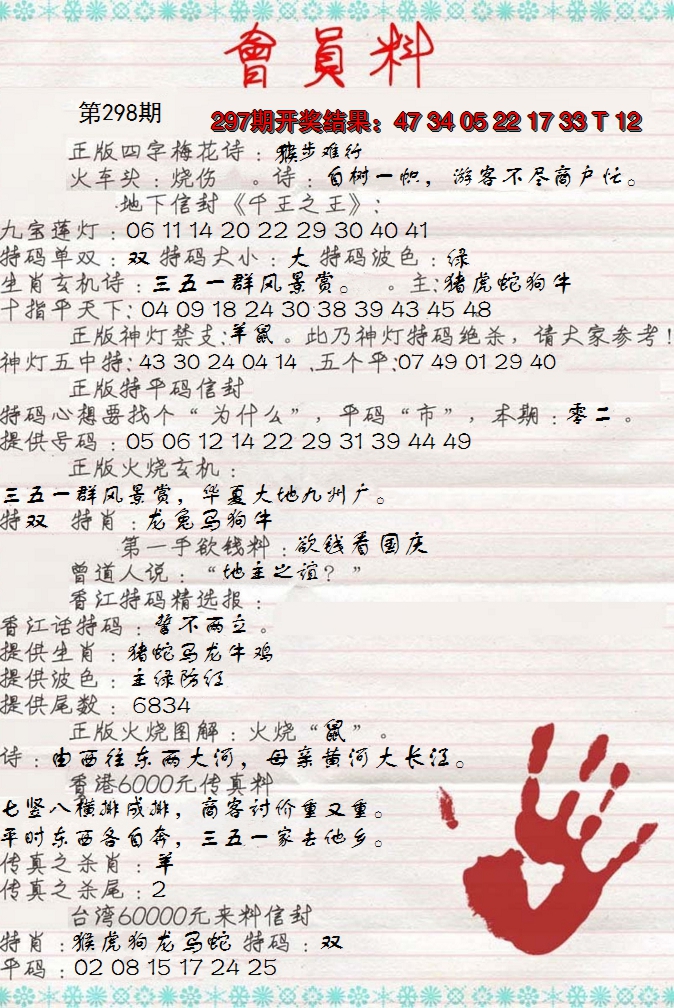 會員料
第298期
297期开奖结果：47 34 05 22 17 33 T 12
正版四字梅花诗：猴步难行
火车头：烧伤 。诗：白树一帜，游客不尽商户忙。
地下信封《千王之王》：
九宝莲灯：06 11 14 20 22 29 30 40 41
特码单双：双 特码大小：大 特码波色：绿
生肖玄机诗：三五一群风景赏。 。主:猪虎蛇狗牛
十指平天下:04 09 18 24 30 38 39 43 45 48
正版神灯禁支:羊鼠。此乃神灯特码绝杀，请大家参考!
神灯五中特:43 30 24 04 14 、五个平:07 49 01 29 40
正版特平码信封
特码心想要找个“为什么”，平码“市”，本期：零二。
提供号码：05 06 12 14 22 29 31 39 44 49
正版火烧玄机：
三五一群风景赏，华夏大地九州广。
特双 特肖：龙兔马狗牛
第一手欲钱料：欲钱看国庆
曾道人说：“地主之谊？”
香江特码精选报：
香江话特码：誓不两立。
提供生肖：猪蛇马龙牛鸡
提供波色：主绿防红
提供尾数：6834
正版火烧图解：火烧“鼠”。
诗：由西往东两大河，母亲黄河大长江。
香港6000元传真料
七竖八横排成排，商客讨价重又重。
平时东西各自奔，三五一家去他乡。
传真之杀肖：羊
传真之杀尾：2
台湾60000元来料信封
特肖：猴虎狗龙马蛇 特码：双
平码：02 08 15 17 24 25